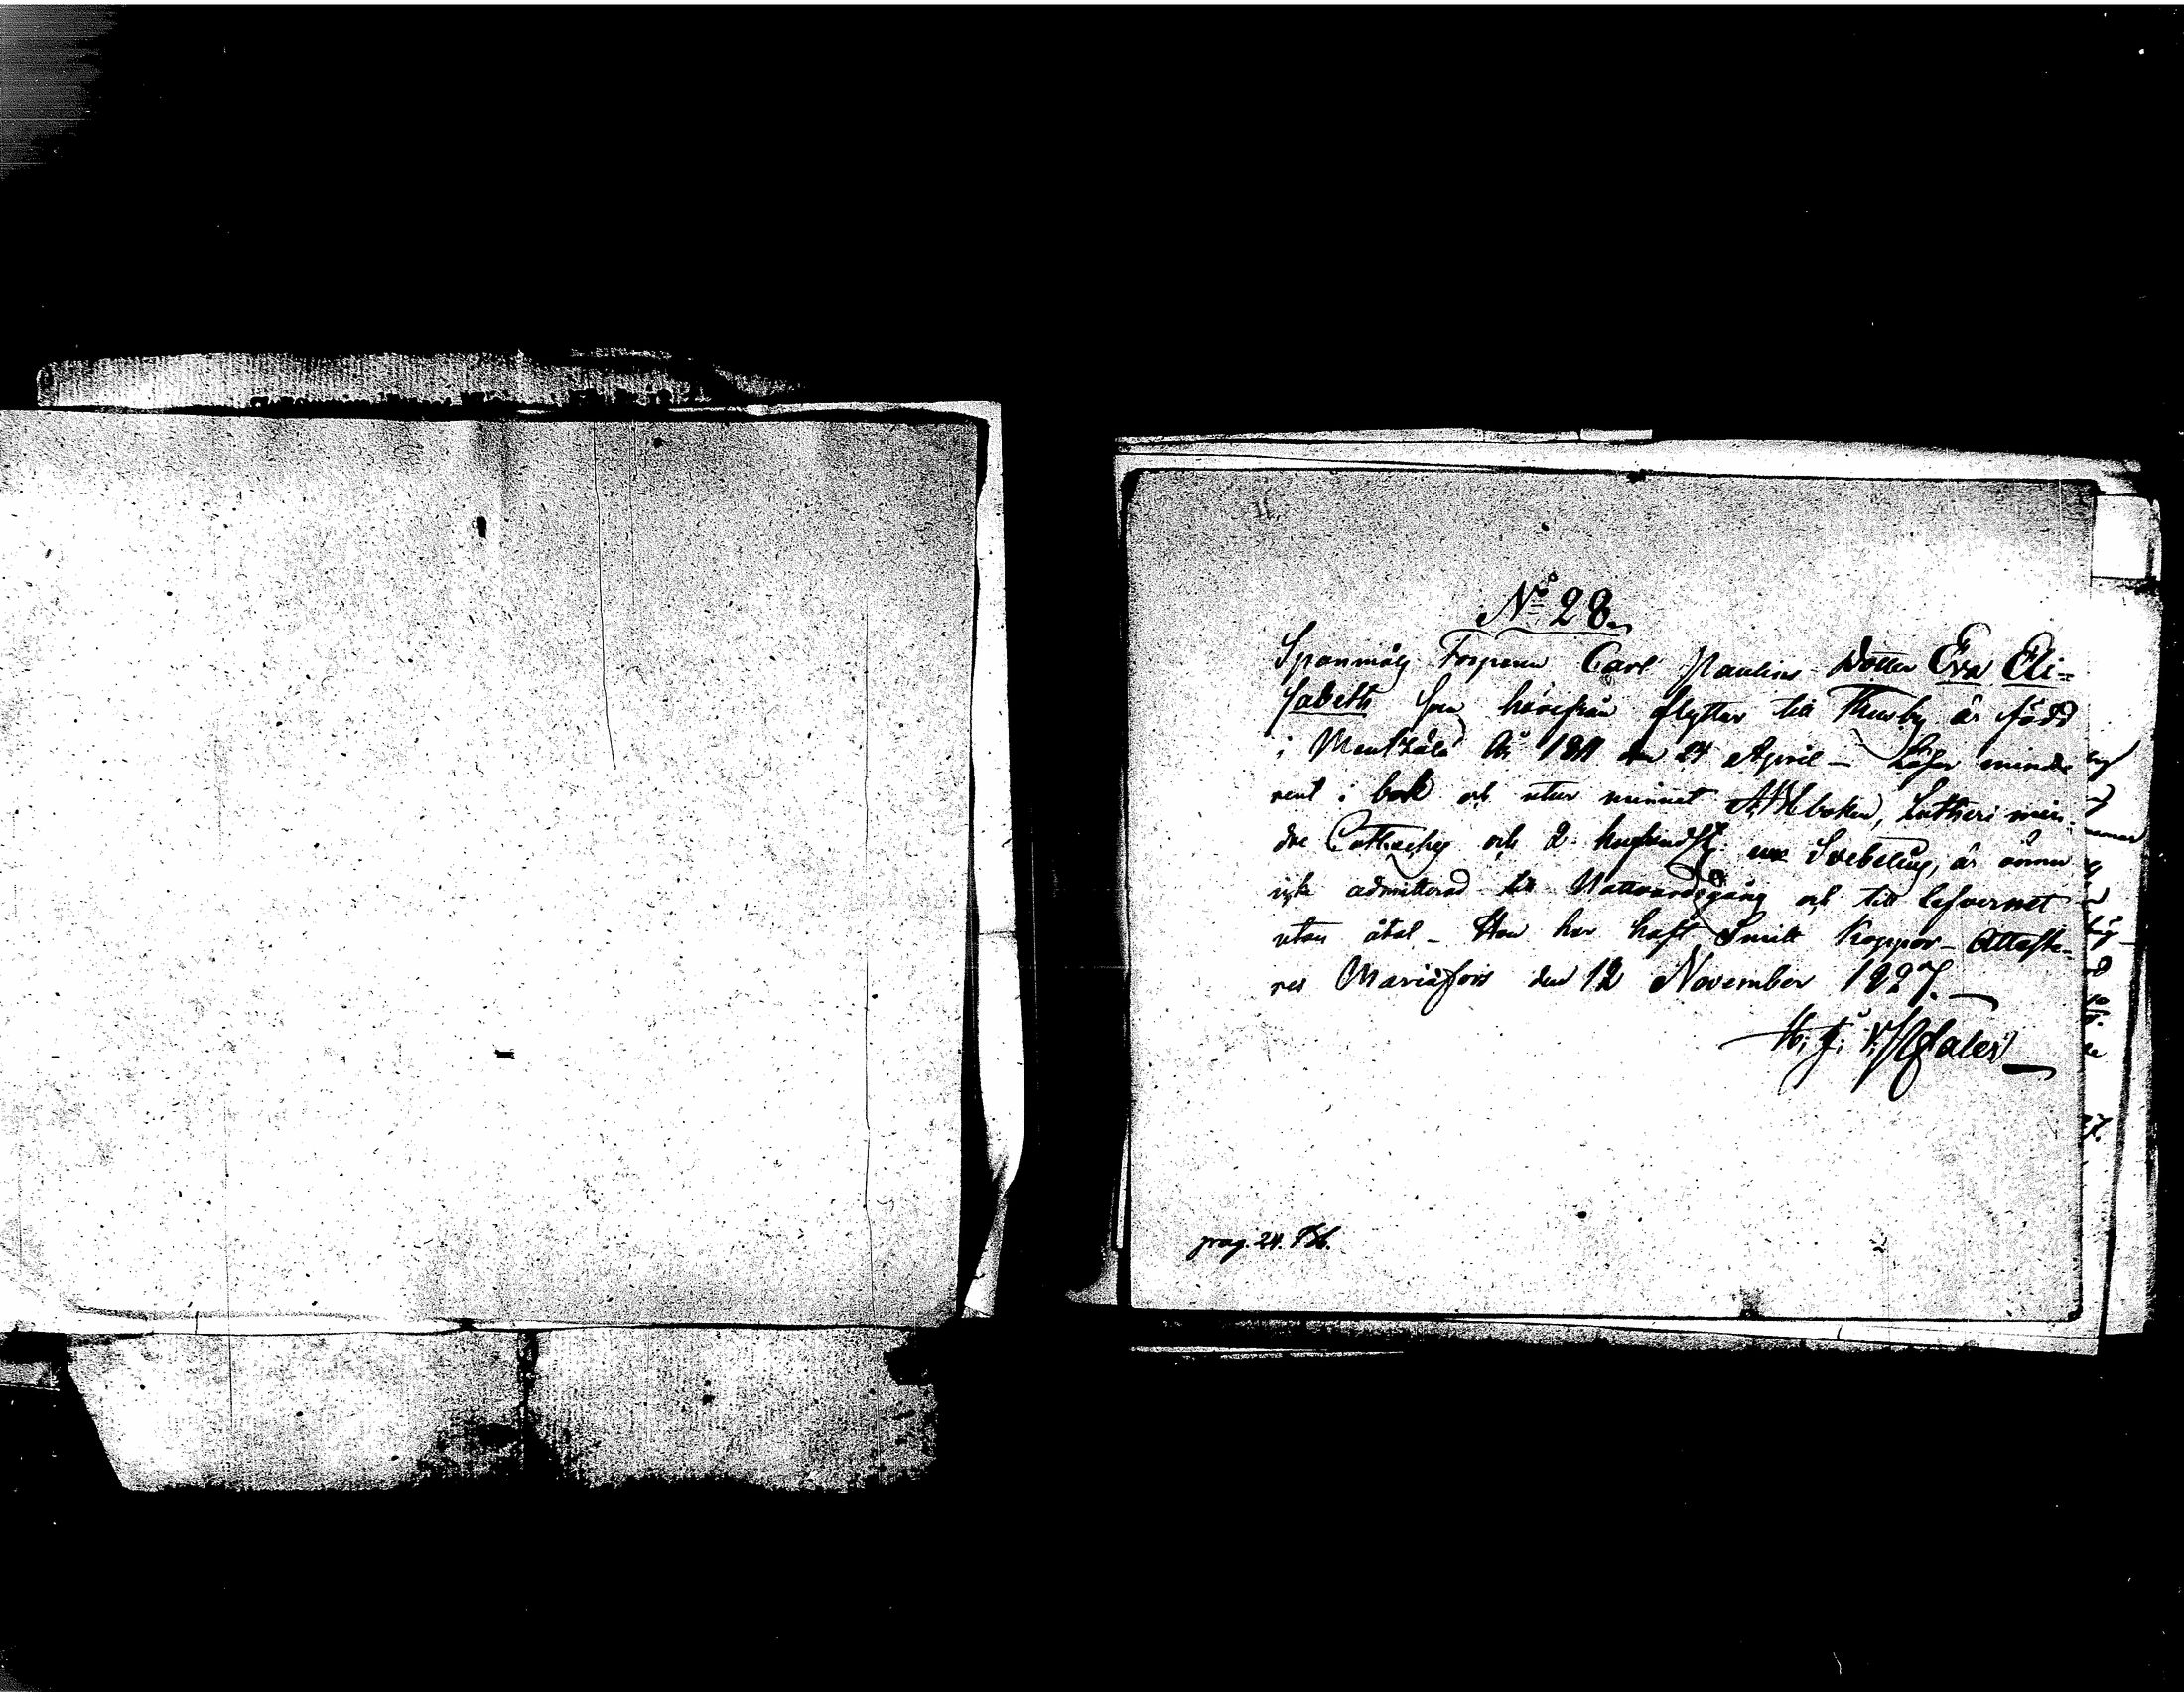 No 28.
Spanmåls Torparen Carl Paulins Dotter Eva Eli-
sabeth som härifrån flyttar till Thusby är född
i Mentzälä År 1811 den 24 April – Läser mindre
rent i bok och utur minnet Abboken, Lutheri min-
dre Cateches och 2 hufvudst: Svebelius, är ännu
icke admitterad till Nattvardsgång och till lefvernet
utan åtal – Hon har haft Smitt Koppor – Atteste-
res Mariäfors den 12 November 1827.
pag. 24.